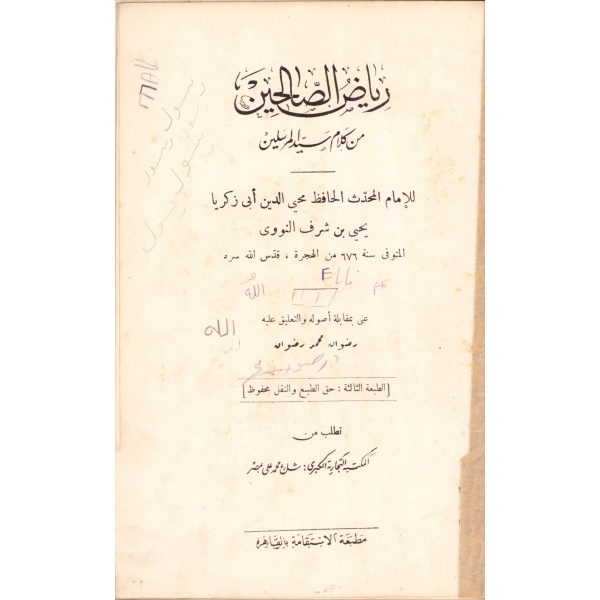 رياض الصّالحين
من كلام سيّد المرسلين
للإمام المحدّث الحافظ محي الدين أبى زكريا
يحيى بن شرف النووى
المتوفى سنة ٦٧٦ من الهجرة ، قدّس الله سره
الله
عنى بمقابلة أصوله والتعليق عليه
الله
رضوان محمد رضوان
[الطبعة الثالثة : حق الطبع والنقل محفوظ]
تطلب من
المكتبة التجارية الكبرى : شارع محمد على بمصر
مطبعة الاستقامة بالقاهرة